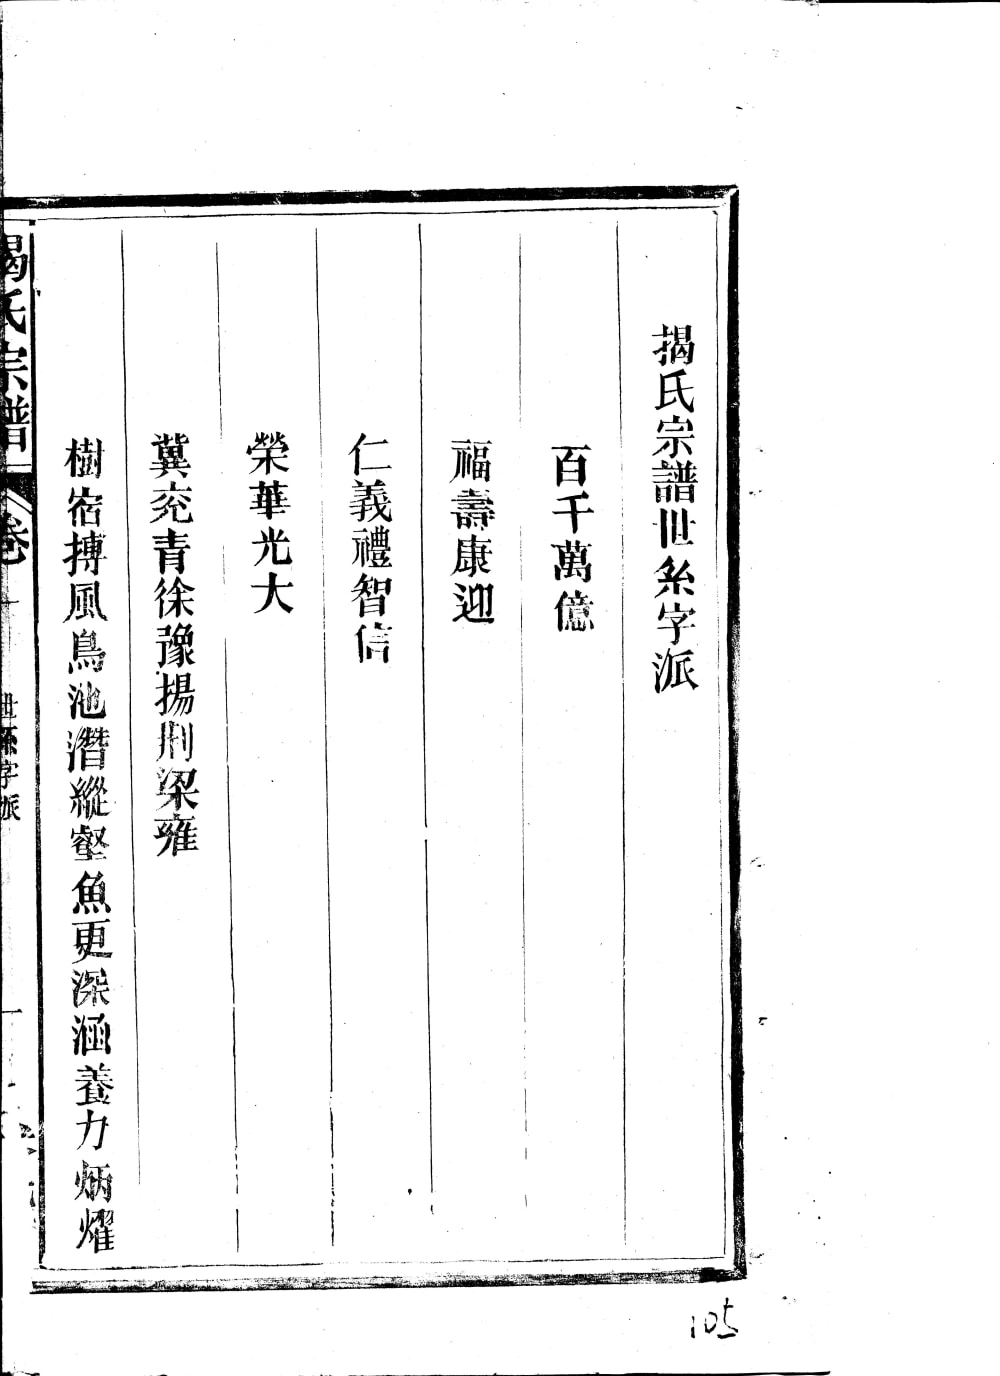 揭氏宗譜世系字派
百千萬億
福壽康迎
仁義禮智信
榮華光大
冀兖青徐豫揚荆梁雍
樹宿摶風鳥池潛縱壑魚更深涵養力炳燿
揭氏宗譜
卷
世系字派
105